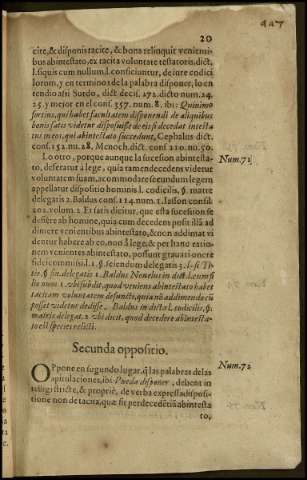 447
20
cite, & disponis tacitè, & bona relinquit venientibus
abintestato, ex tacita voluntate testatoris, dict.
l. si quis cum nullum. l. conficiuntur, de iure codicillorum,
y en terminos de la palabra disponer, lo entendio
assi Surdo, dict. decis. 272. dicto num. 24.
25. y mejor en el cons. 357. num. 8. ibi: Quinimo
fortius, qui habet facultatem disponendi de aliquibus
bonis satis videtur disposuisse de eis si decedat intestatus
meis, qui ab intestato succedunt, Cephalus dict.
cons. 152. nu. 28, Menoch. dict. cons 220. no. 50.
Lo otro, porque aunque la sucesion abintestato,
deferatur à lege, quia tamen decedens videtur Num. 71
voluntatem suam, accommodare secundum legem
appellatur dispositio hominis l. codicilis, §. matre
delegatis 2. Baldus cons 114. num 1. Iasson consil.
202. volum 2. Et satis dicitur, que esta sucesion se
defiere ab homine, quia cum decedens possit illã adimere
venientibus abintestato, & non addimat videntur
habere ab eo, non à lege, & per hanc rationem
venientes abintestato, possunt gravari onere
fideicommissi. l. 1. §. sciendum delegatis 3.
posset videtur dedisse. Baldus in dicta l. codicilis, §.
matre, delegat. 2 ubi dicit. quod decedere abintestato
est species relicti.
Secunda oppositio.
OPpone en segundo lugar, q̃ las palabras de las Num. 72
capitulaciones, ibi: Pueda disponer, debent intelligi
strictè, & propriè, de verba expressa dispositione
non de tacita, quæ fit per decedentiã abintestato,